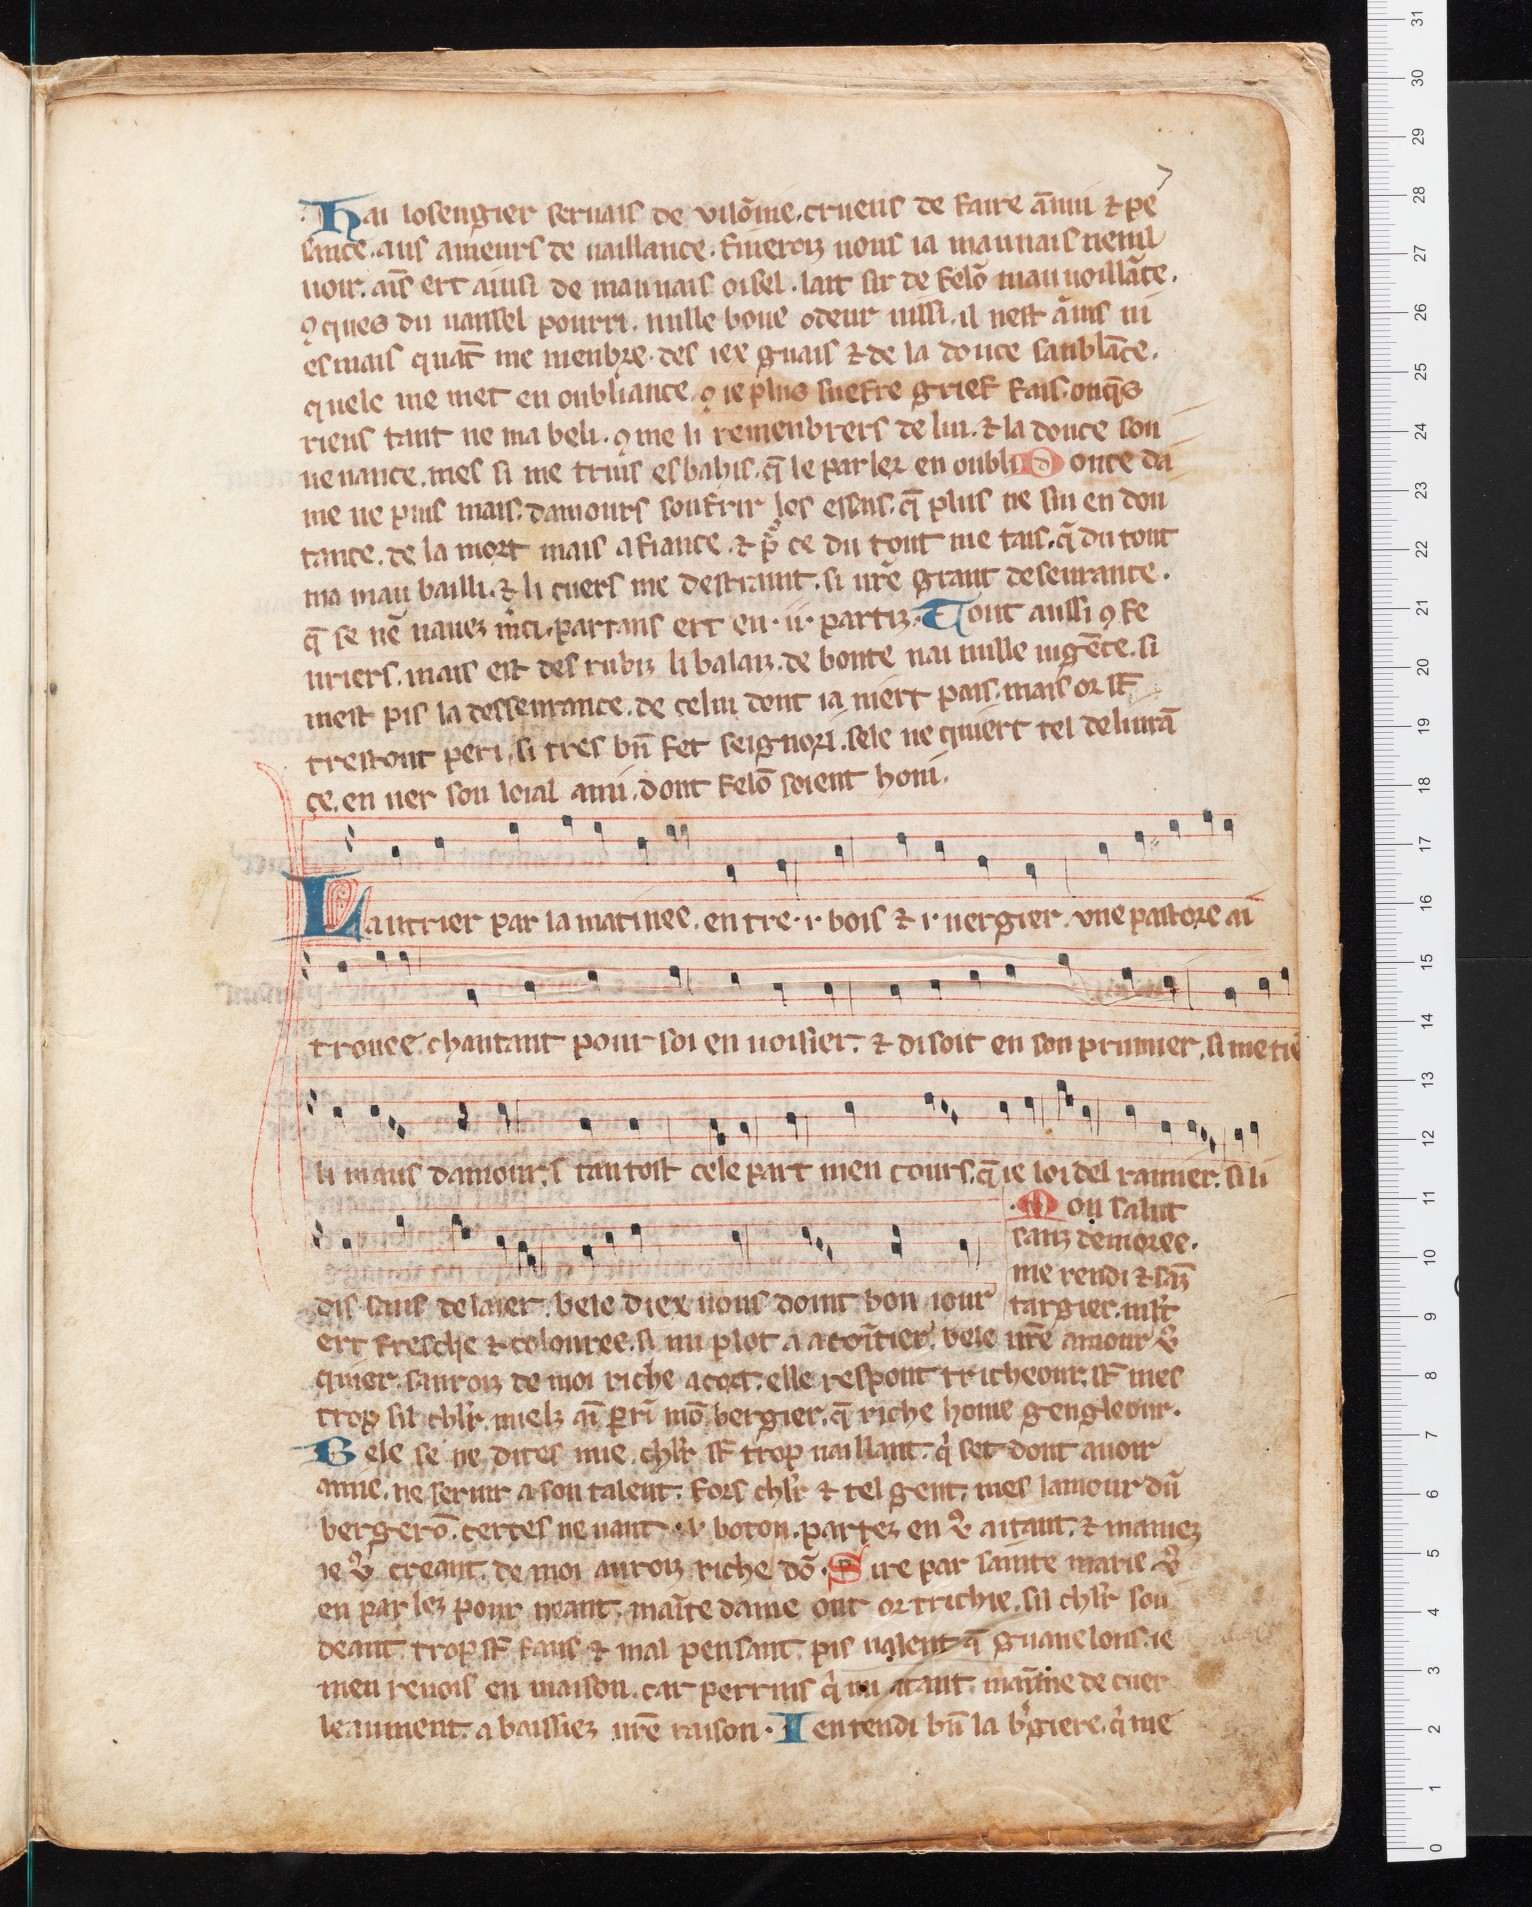 7
Hai losengier seruais de vilōnie. crueus de faire ānui ⁊ pe
sance. aus ameurs de uaillance. fineroiz uous ia mauuais nenil
uoir. ain̄s ert ainsi de mauuais oisel. lait sir de felō mauuoillāce.
ꝯques du uaissel pourri. nulle bone odeur nissi. il nest āuis ni
esmais quāt me menbre. des iex guais ⁊ de la douce sanblāce.
quele me met en oubliance. ꝯ ie plus suefre grief fais. onq̄s
riens tant ne ma beli. ꝯ me li remenbrers de lui. ⁊ la douce sou
uenance. mes si me truis esbahis. q̄ le parler en oubli Douce da
me ne puis mais. damours soufrir les essais. q̄ plus ne sui en dou
tance. de la mort mais a fiance. ⁊ p̄ ce du tout me tais. q̄ du tout
ma mau bailli. ⁊ li cuers me destraint. si ur̄e grant deseurance.
q̄ se nē nauez m̄ci. partans ert en .ii. partiz. Tout aussi ꝯ fe
uriers. mais est des rubiz li balaiz. de bonte nai nulle iugēce. si
mest pis la desseurance. de celui dont ia niert pais. mais or sōt
trestout peri. si tres bn̄ fet seignori. sele ne quiert tel deliurā
ce. en uer son loial ami. dont felō soient honi.
Lautrier par la matinee. entre .i. bois ⁊ .i. uergier. vne pastore ai
trouee. chantant pour soi en uoisier. ⁊ disoit en son prumier. si me tiē
li maus damours. tantost cele part men cours. q̄ ie loi del raisnier. si li
dis sans delaier. bele diex uous doint bon iour
Mon salut
sanz demoree.
me rendi ⁊ sāz
targier. mlt̄
ert fresche ⁊ coulouree. si mi plot a acointier. bele ur̄e amour v9
quier. sauroiz de moi riche acort. elle respont tricheour. sōt mes
trop sil chl̄r. miels ai perī mō bergier. q̄ riche home gengleour.
Bele se ne dites mie. chl̄r sōt trop uaillant. q̄ set dont auoir
amie. ne seruir a son talent. fors chl̄r ⁊ tel gent. mes lamour dū
bergerō. certes ne uaut .i. boton. partez en v9 aitant. ⁊ mamez
ie v9 creant. de moi auroiz riche dō. Sire par sainte marie v9
en parlez pour neant. mainte dame ont or trichie. sil chl̄r sou
deant. trop sōt faus ⁊ mal pensant. pis ualent q̄ guanelons. ie
men reuois en maison. car perrins q̄ mi atant. maīme de cuer
leaument. abaissiez ur̄e raison. Ientendi bn̄ la b'giere. q̄ me